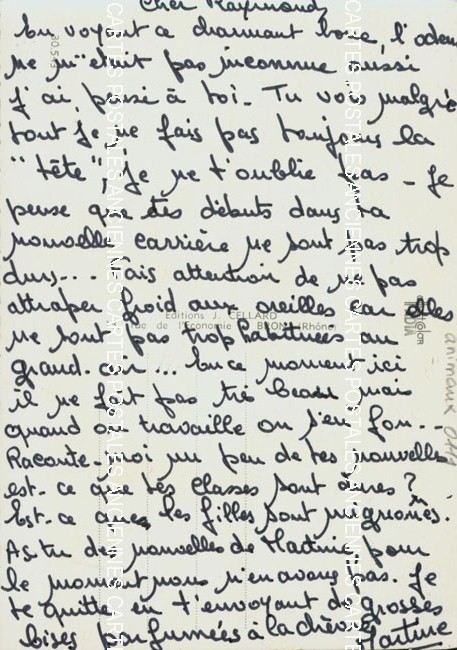 Cher Raymond,
En voyant ce charmant bouc, l'odeur
ne m'était pas inconnue aussi
j'ai pensé à toi. Tu vois malgré
tout je ne fais pas toujours la
"tête", je ne t'oublie pas - Je
pense que tes débuts dans ta
nouvelle carrière ne sont pas trop
durs... Fais attention de ne pas
attraper froid aux oreilles car elles
Editions J. CELLARD
ne sont pas trop habituées au
rue de l'Economie BRON (Rhône)
grand air... En ce moment ici
il ne fait pas très beau mais
quand on travaille on s'en fou...
Raconte-moi un peu de tes nouvelles
est-ce que tes classes sont dures?
Est-ce que les filles sont mignonnes.
As tu des nouvelles de Martine, pour
le moment nous n'en avons pas. Je
te quitte en t'envoyant de grosses
bises parfumées à la chèvre
Martine
animaux
CARTES POSTALES ANCIENNES